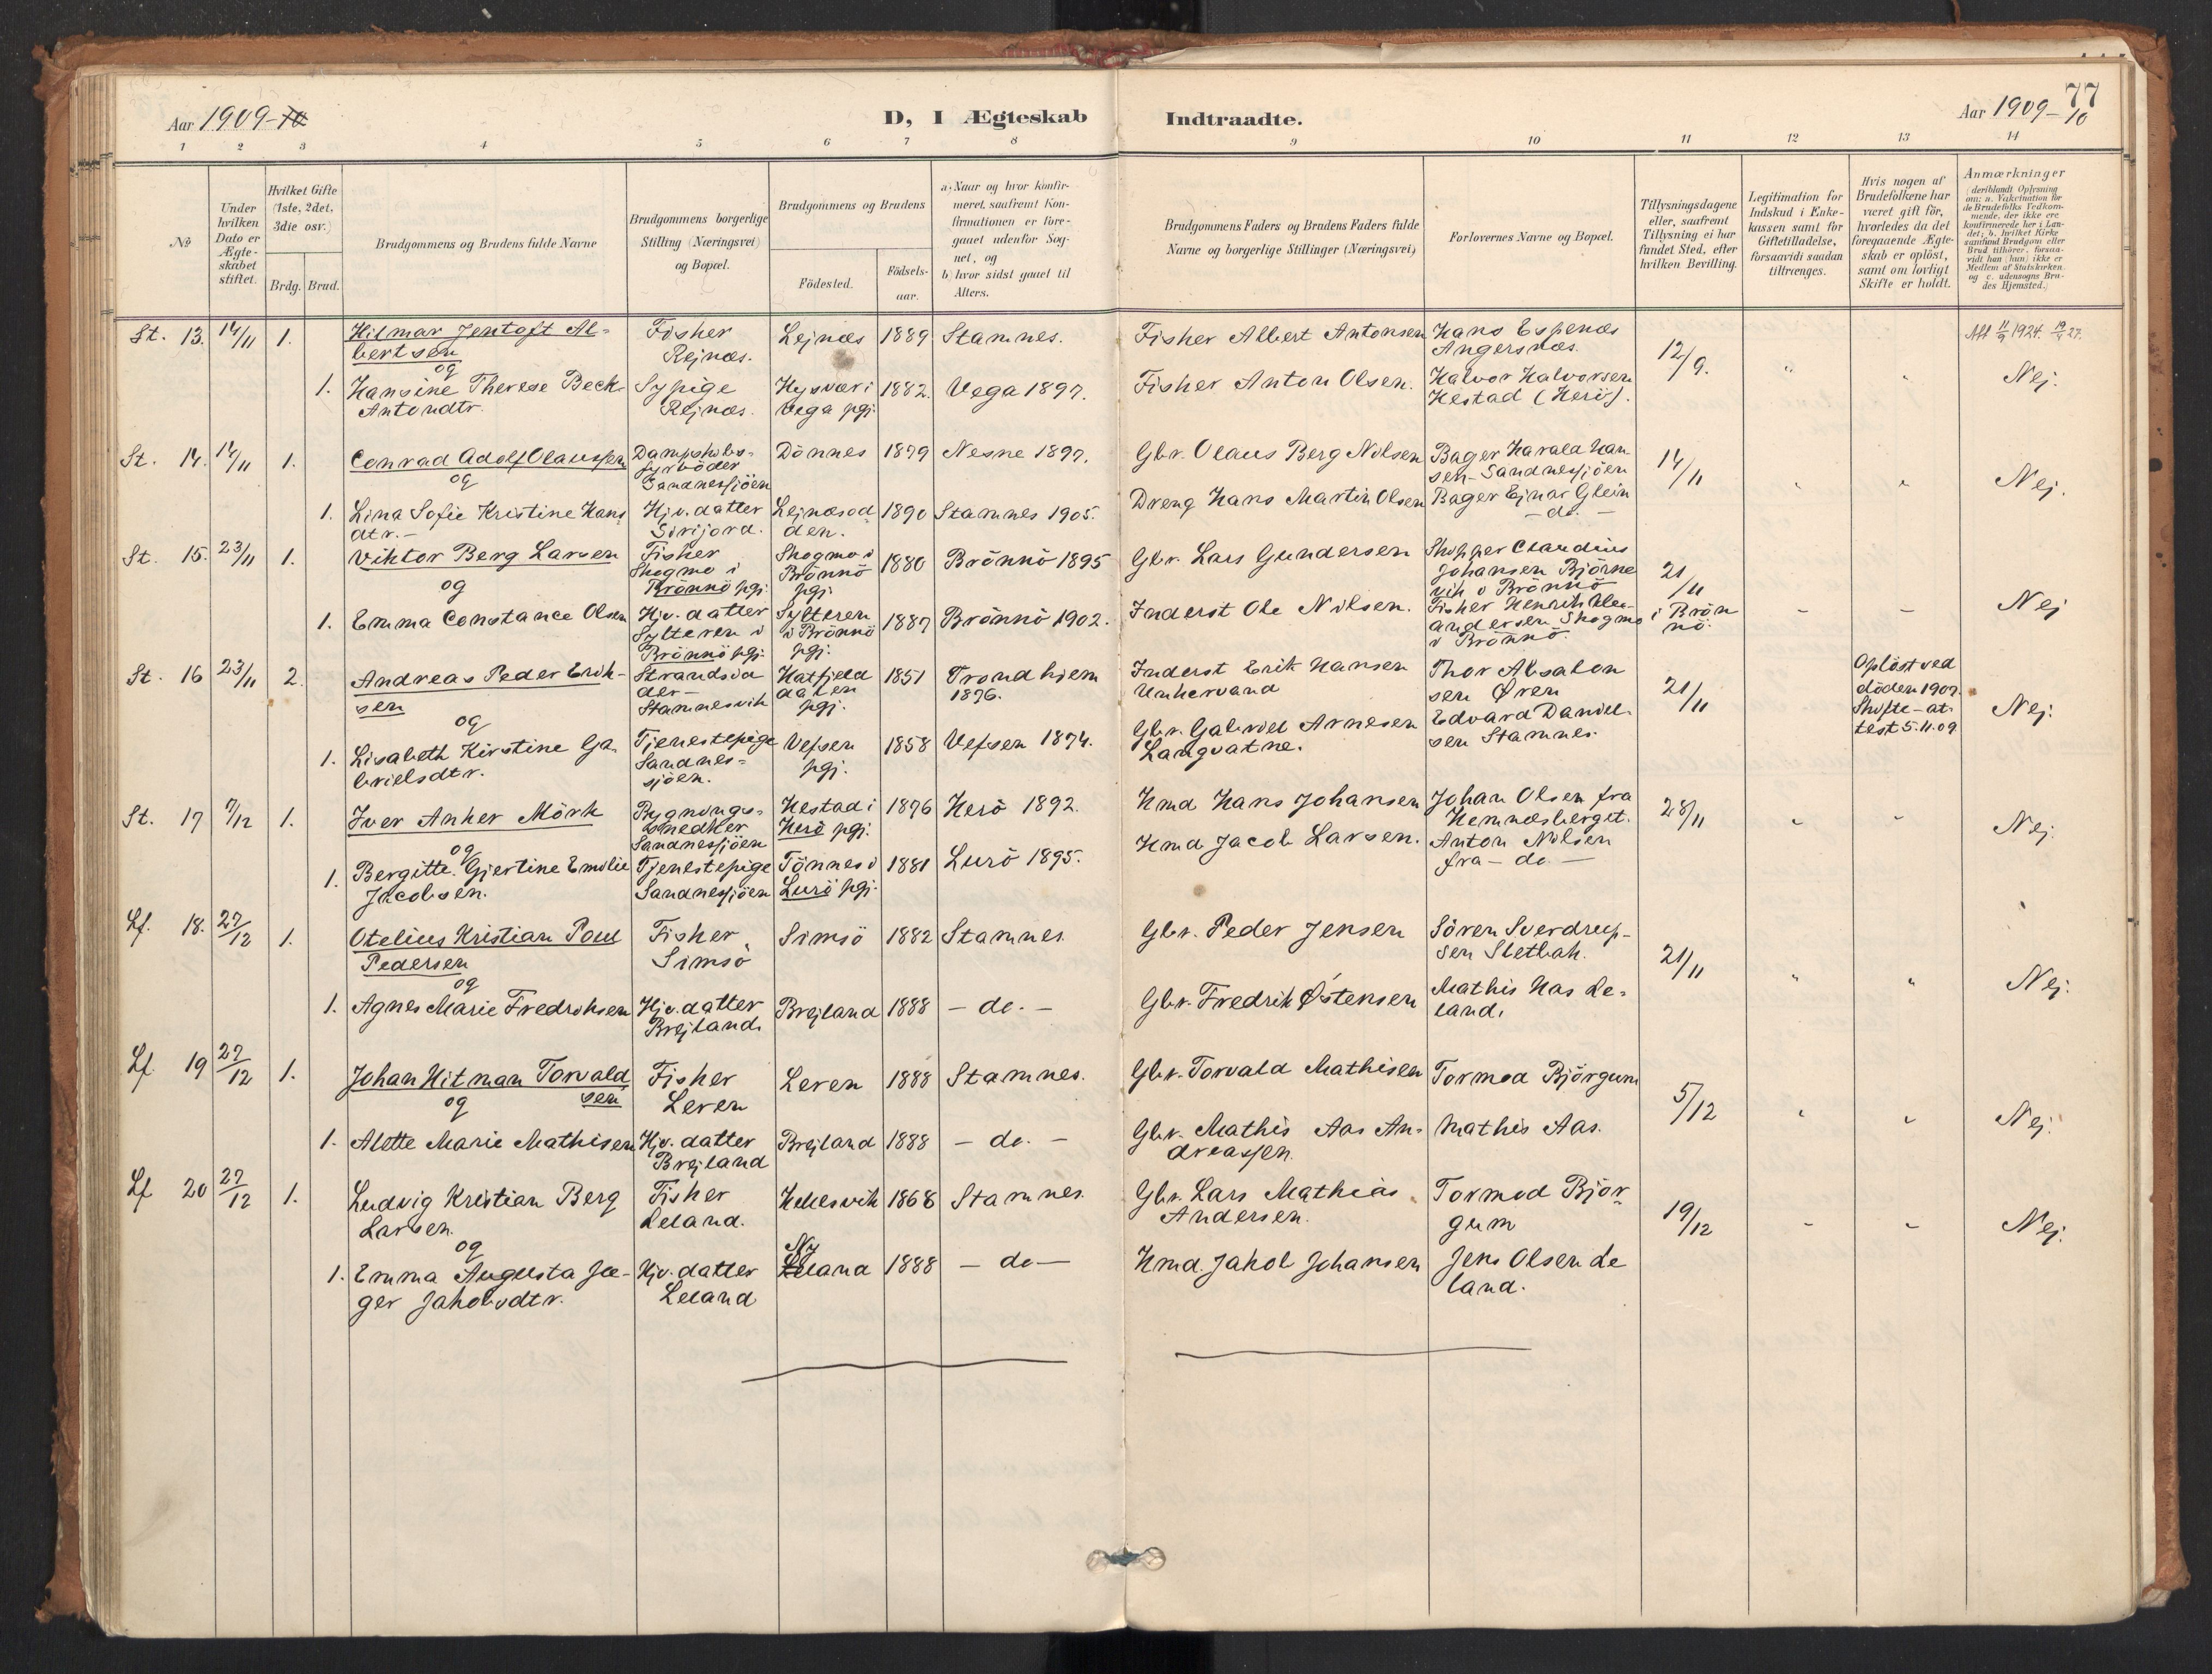 77
Aar 1909-10
D, I Ægteskab Indtraadte.
Aar 1909-10
1 2 3 4 5 6 7 8 9 10 11 12 13 14
No
Under hvilken Dato er Ægteskabet stiftet.
Hvilket Gifte (1ste, 2det, 3die osv.)
Brdg. Brud.
Brudgommens og Brudens fulde Navne
Brudgommens borgerlige Stilling (Næringsvei) og Bopæl.
Brudgommens og Brudens
Födested.
Födselsaar.
a) Naar og hvor konfirmeret, saafremt Konfirmationen er foregaaet udenfor Sognet, og
b) hvor sidst gaaet til Alters.
Brudgommens Faders og Brudens Faders fulde Navne og borgerlige Stillinger (Næringsvei)
Forlovernes Navne og Bopæl.
Tillysningsdagene eller, saafremt Tillysning ei har fundet Sted, efter hvilken Bevilling.
Legitimation for Indskud i Enkekassen samt for Giftetilladelse, forsaavidt saadan tiltrænges.
Hvis nogen af Brudefolkene har været gift för, hvorledes da det foregaaende Ægteskab er oplöst, samt om lovligt Skifte er holdt.
Anmærkninger (deriblandt Oplysning om: a. Vakcination for de Brudefolks Vedkommende, der ikke ere konfirmerede her i Landet; b. hvilket Kirkesamfund Brudgom eller Brud tilhörer, forsaavidt han (hun) ikke er Medlem af Statskirken og c. udensogns Brudes Hjemsted.)
St. 13. 14/11 1. Hilmar Jentoft Al-
bertsen
og
Fisker
Rejnæs.
Lejnæs 1889 Stamnes.
Fisker Albert Antonsen
Hans Espenæs
Angersnæs.
12/9.
Att 11/9 1924. 19/4 27.
1. Hansine Therese Beck
Antondtr.
Sypige
Rejnæs.
Hysvær i
Vega pgj.
1882. Vega 1897.
Fisker Anton Olsen.
Halvor Halvorsen
Hestad (Herö).
Nej.
St. 14. 14/11 1. Conrad Adolf Olaussen
og
Dampskibs-
fyrböder
Sandnessjöen
Dönnes 1879 Nesne 1897.
Gbr. Olaus Berg Nilsen
Bager Harald Han
sen-Sandnessjöen
14/11
Nej.
1. Lina Sofie Kristine Hans
dtr.-
Hjv. datter
Sirijord.
Lejnæsod-
den.
1890 Stamnes 1905.
Dreng Hans Martin Olsen
Bager Ejnar Glein
- do. -
St. 15. 23/11 1. Viktor Berg Larsen
og
Fisker
Skogmo i
Brönnö pgj.
Skogmo i
Brönnö
pgj.
1880 Brönnö 1895
Gbr. Lars Gundersen
Skipper Claudius
Johansen Björne
vik i Brönnö
21/11
i Brön
nö.
1. Emma Constance Olsen
Hjv. datter
Sylteren i
Brönnö pgj.
Sylteren
i Brönnö
pgj.
1887 Brönnö 1902.
Inderst Ole Nilsen.
Fisker Henrik Alex-
andersen Skogmo
i Brönnö.
- - Nej
St. 16 23/11 2. Andreas Peder Erik-
sen
og
Strandsid
der-
Stamnesvik
Hatfjeld
dalen
pgj.
1851 Trondhjem
1876.
Inderst Erik Hansen
Unkervand
Thor Absalon
sen Øren
21/11
Oplöst ved
döden 1907.
Skifte-at-
test 5.11.09
Nej.
1. Lisabeth Kirstine Ga-
brielsdtr.
Tjenestepige
Sandnes-
sjöen.
Vefsen
pgj.
1858 Vefsen 1874.
Gbr. Gabriel Arnesen
Langvatne.
Edvard Daniel-
sen Stamnes.
St. 17 7/12 1. Iver Anker Mörk
og
Bygnings-
snedker
Sandnessjöen
Hestad i
Herö pgj.
1876 Herö 1892.
Hmd Hans Johansen
Johan Olsen fra
Hemnesberget.
28/11
Nej.
1. Bergitte Gjertine Emilie
Jacobsen.
Tjenestepige
Sandnessjöen
Tönnes i
Lurö pgj.
1881 Lurö 1895.
Hmd Jacob Larsen.
Anton Nilsen
fra - do. -
Lf. 18. 27/12 1. Otelius Kristian Poul
Pedersen
og
Fisker
Simsö
Simsö 1882 Stamnes.
Gbr. Peder Jensen
Sören Sverdrup-
sen Sletbak.
21/11
Nej.
1. Agnes Marie Fredriksen
Hjv. datter
Brejland.
Brejland 1888 - do. -
Gbr. Fredrik Østensen
Mathis Aas Le-
land.
Lf. 19 27/12 1. Johan Hitman Torvald
sen
og
Fisker
Leren
Leren 1888 Stamnes.
Gbr. Torvald Mathisen
Tormod Björgum
5/12
Nej.
1. Alette Marie Mathisen
Hjv. datter
Brejland
Brejland 1888 - do. -
Gbr. Mathis Aas An-
dreassen.
Mathis Aas.
Lf 20 27/12 1. Ludvig Kristian Berg
Larsen.
og
Fisker
Leland.
Hellesvik 1868 Stamnes.
Gbr. Lars Mathias
Andersen.
Tormod Björ-
gum
19/12
- - Nej.
1. Emma Augusta Jæ-
ger Jakobsdtr.
Hjv. datter
Leland
Leland 1888 - do -
Hmd. Jakob Johansen
Jens Olsen Le
land.